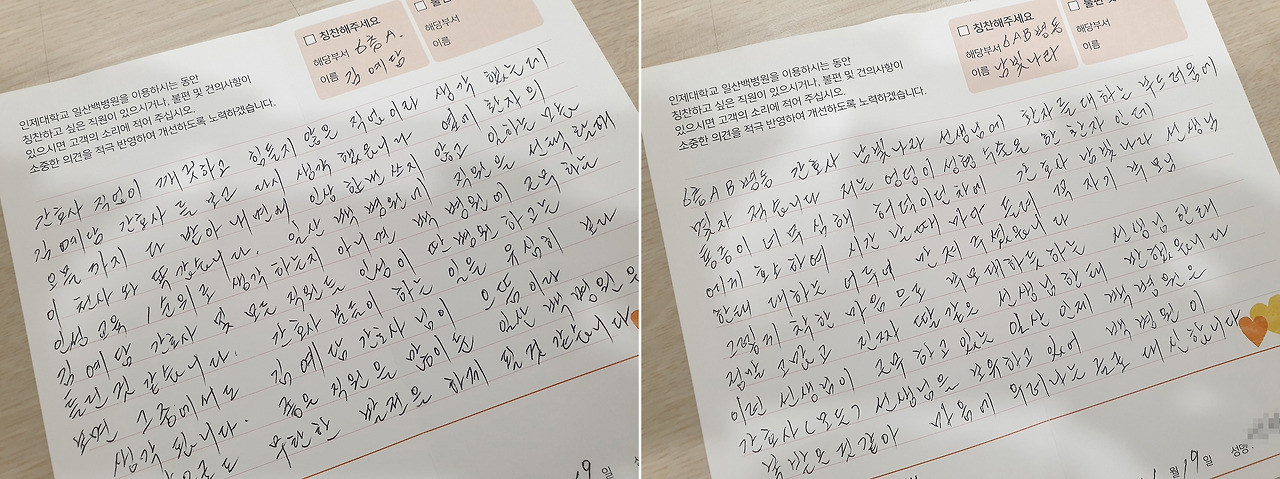 칭찬해주세요
해당부서 6층A.
이름 김예담
해당부서
이름
인제대학교 일산백병원을 이용하시는 동안
칭찬하고 싶은 직원이 있으시거나, 불편 및 건의사항이
있으시면 고객의 소리에 적어 주십시오.
소중한 의견을 적극 반영하여 개선하도록 노력하겠습니다.
간호사 직업이 깨끗하고 힘들지 않은 직업이라 생각 했는데
김예담 간호사를 보고 다시 생각 했읍니다 옆이 환자의
오물까지 다 받아내면에 인상 한번 쓰지 않고 일하는 모습
이 천사와 똑같습니다. 일산 백병원에 직원을 선택할때
인성 교육 1순위로 생각 하는지 아니면 백병원에 근무 하는
김예담 간호사 및 모든 직원들 인성이 딴 병원하고는
틀린것 같습니다. 간호사 분들이 하는 일을 유심히 보다
보면 그중에서도 김예담 간호사님이 으뜸이랑
생각 됩니다. 좋은 직원을 많이는 일산 백병원
무한한 발전을 함께 될것 같습니다
19일
칭찬해주세요
해당부서 6AB병동
이름 남빛나라
해당부서
이름
인제대학교 일산백병원을 이용하시는 동안
칭찬하고 싶은 직원이 있으시거나, 불편 및 건의사항이
있으시면 고객의 소리에 적어 주십시오.
소중한 의견을 적극 반영하여 개선하도록 노력하겠습니다.
6층AB병동 간호사 남빛나라 선생님에 환자를 대하는 부드러움에
몇자 적습니다 저는 엉덩이 성형 수술을 한 환자 인데
통증이 너무 심해 허덕이던차에 간호사 남빛나라 선생님
에게 호출하여 시간 날때 마다 들려 꼭 자기 부모님
한테 대하는 어투며 만져 주셨읍니다
그렇게 착한 마음으로 부모 대하듯하는 선생님 한테
정말 고맙고 진짜 딸같은 선생님한테 반했읍니다
이런 선생님이 근무 하고 있는 일산 인제 백병원은
간호사(모든) 선생님을 보유하고 있어 백병원이
복 받은 것같아 마음에 우러나는 글로 대신합니다
19일 성명.